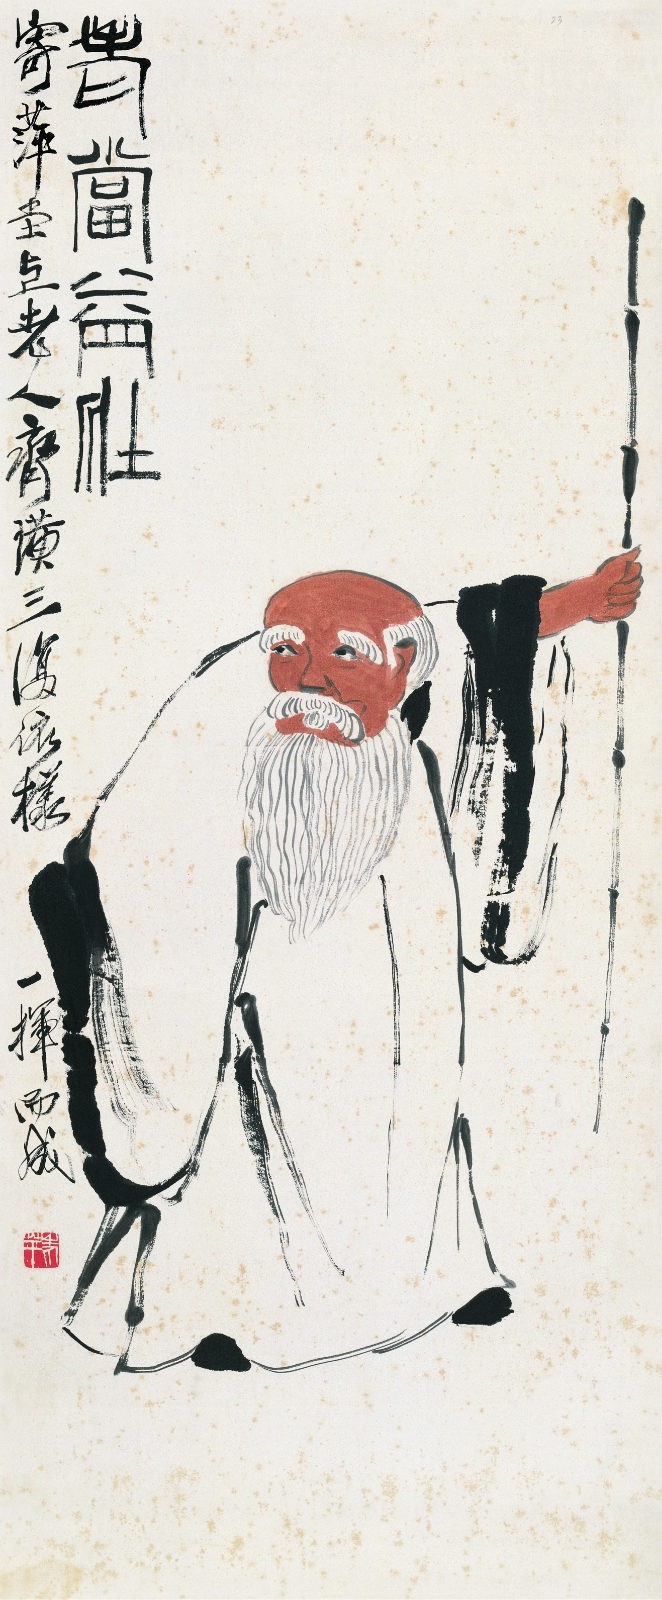 老當益壯
寄萍堂上老人齊璜三復依樣一揮而成
23